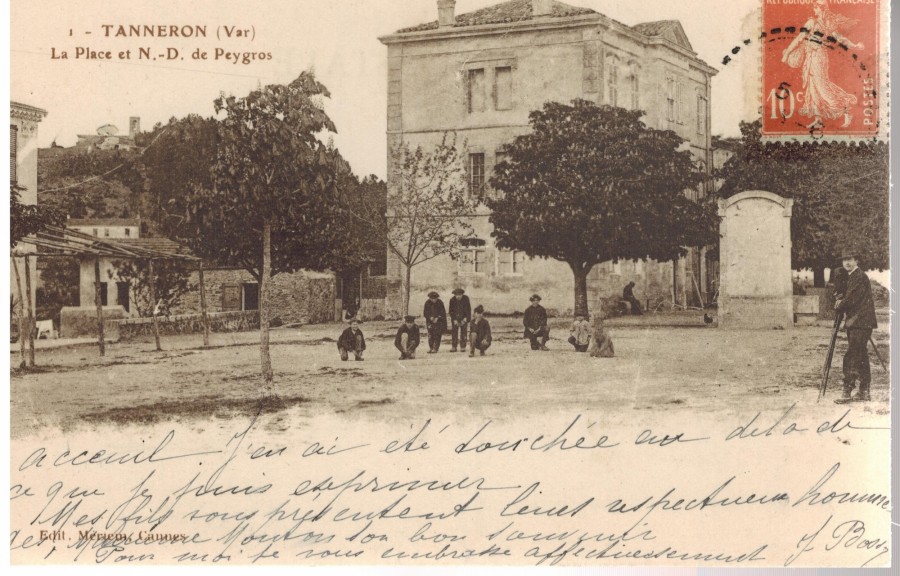 1 - TANNERON (Var)
La Place et N.-D. de Peygros
RÉPUBLIQUE FRANÇAISE
10 c
POSTES
acceuil J'en ai été touchée au delà de
ce que je puis exprimer
Mes fils vous présentent leurs respectueux homme
Edit. Mérieu, Cannes
des, Monton son bon souvenir
Pour moi je vous embrasse affectueusement J Bosq